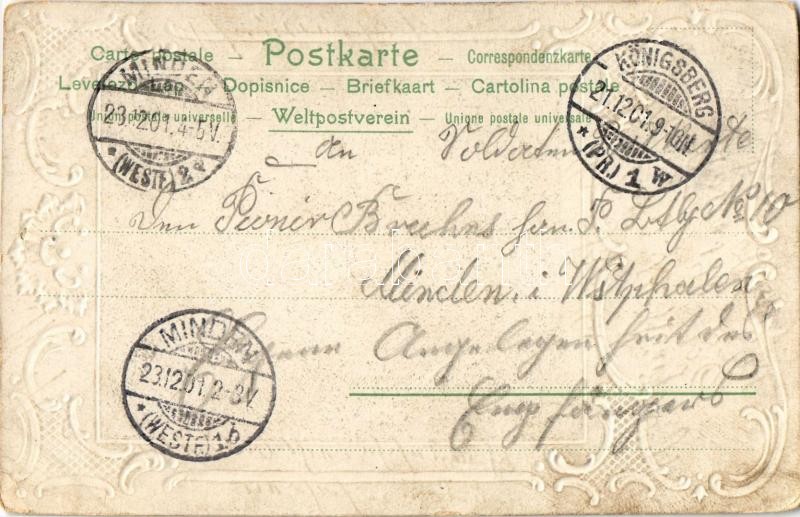 Carte postale – Postkarte – Correspondenzkarte
Levelező-Lap – Dopisnice – Briefkaart – Cartolina postale
Union postale universelle – Weltpostverein – Unione postale universale
MINDEN
23.12.01.4-5V.
* (WESTF.) 2
KÖNIGSBERG
21.12.01.9-10N.
* (PR.) 1 W
an Soldaten
Den Pionir P. No 10
Minden i Westphalen
Angelegenheit des
Empfängers
MINDEN
23.12.01.2-3V.
* (WESTF.) 1 b